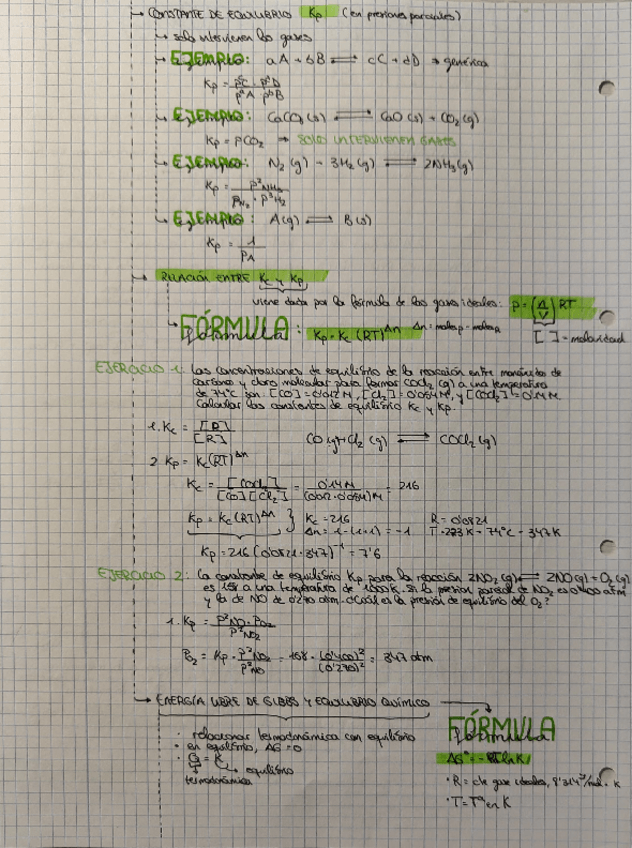 → CONSTANTE DE EQUILIBRIO Kp (en presiones parciales)
→ solo intervienen los gases
→ EJEMPLO: aA + bB ⇌ cC + dD → genérica
Kp = p^cC · p^dD / p^aA · p^bB
→ EJEMPLO: CaCO3(s) ⇌ CaO(s) + CO2(g)
Kp = pCO2 → SOLO INTERVIENEN GASES
→ EJEMPLO: N2(g) + 3H2(g) ⇌ 2NH3(g)
Kp = p²NH3 / pN2 · p³H2
→ EJEMPLO: A(g) ⇌ B(s)
Kp = 1 / pA
→ RELACIÓN ENTRE Kc y Kp
viene dada por la fórmula de los gases ideales: p = (n/V) RT
→ FÓRMULA: Kp = Kc (RT)^Δn Δn = molesp - molesr [ ] = molaridad
EJERCICIO 1: Las concentraciones de equilibrio de la reacción entre monóxido de
carbono y cloro molecular para formar COCl2 (g) a una temperatura
de 74ºC son: [CO] = 0'012 M, [Cl2] = 0'054 M, y [COCl2] = 0'14 M.
Calcular las constantes de equilibrio Kc y Kp.
1. Kc = [P] / [R] CO(g) + Cl2 (g) ⇌ COCl2 (g)
2. Kp = Kc (RT)^Δn
Kc = [COCl2] / [CO][Cl2] = 0'14 M / (0'012 · 0'054) M = 216
Kp = Kc (RT)^Δn } Kc = 216 R = 0'0821
Δn = 1 - (1+1) = -1 T = 273 K + 74ºC = 347 K
Kp = 216 (0'0821 · 347)^-1 = 7'6
EJERCICIO 2: La constante de equilibrio Kp para la reacción 2NO2 (g) ⇌ 2NO (g) + O2 (g)
es 158 a una temperatura de 1000 K. Si la presión parcial de NO2 es 0'400 atm
y la de NO de 0'270 atm. ¿Cuál es la presión de equilibrio del O2?
1. Kp = p²NO · pO2 / p²NO2
PO2 = Kp · p²NO2 / p²NO = 158 · (0'400)² / (0'270)² = 347 atm
→ ENERGÍA LIBRE DE GIBBS Y EQUILIBRIO QUÍMICO
FÓRMULA
· relacionar termodinámica con equilibrio
· en equilibrio, ΔG = 0
ΔGº = -RT ln K
· Q = K
→ equilibrio
termodinámica
· R = cte gases ideales, 8'314 J/mol · K
· T = Tª en K